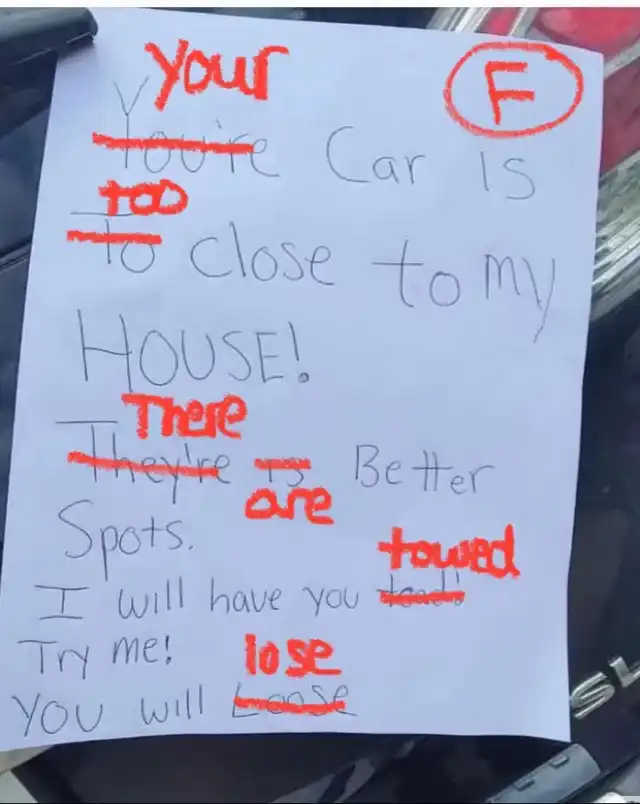 Your
F
You're Car is
too
To close to my
HOUSE!
There
They're is Better
are
Spots.
towed
I will have you toad!
Try me!
lose
You will Loose
SL